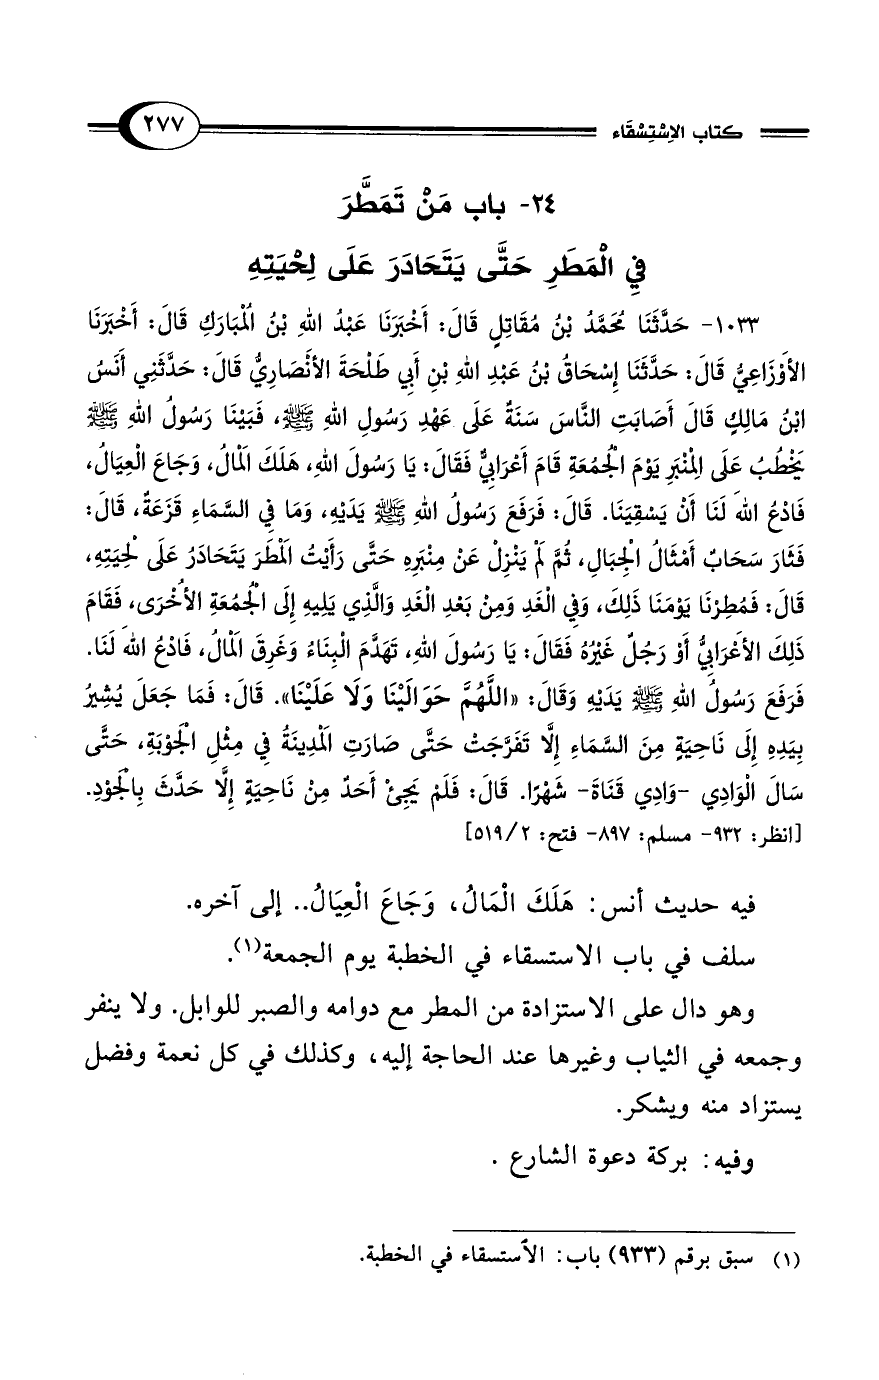 كتاب الاِسْتِسْقَاء
٢٧٧
٢٤- باب مَنْ تَمَطَّرَ
فِي الْمَطَرِ حَتَّى يَتَحَادَرَ عَلَى لِحْيَتِهِ
١٠٣٣- حَدَّثَنَا مُحَمَّدُ بْنُ مُقَاتِلٍ قَالَ: أَخْبَرَنَا عَبْدُ اللهِ بْنُ الْمُبَارَكِ قَالَ: أَخْبَرَنَا
الأَوْزَاعِيُّ قَالَ: حَدَّثَنَا إِسْحَاقُ بْنُ عَبْدِ اللهِ بْنِ أَبِي طَلْحَةَ الأَنْصَارِيُّ قَالَ: حَدَّثَنِي أَنَسُ
ابْنُ مَالِكٍ قَالَ أَصَابَتِ النَّاسَ سَنَةٌ عَلَى عَهْدِ رَسُولِ اللهِ ﷺ، فَبَيْنَا رَسُولُ اللهِ ﷺ
يَخْطُبُ عَلَى الْمِنْبَرِ يَوْمَ الْجُمُعَةِ قَامَ أَعْرَابِيٌّ فَقَالَ: يَا رَسُولَ اللهِ، هَلَكَ الْمَالُ، وَجَاعَ الْعِيَالُ،
فَادْعُ اللهَ لَنَا أَنْ يَسْقِيَنَا. قَالَ: فَرَفَعَ رَسُولُ اللهِ ﷺ يَدَيْهِ، وَمَا فِي السَّمَاءِ قَزَعَةٌ، قَالَ:
فَثَارَ سَحَابٌ أَمْثَالُ الْجِبَالِ، ثُمَّ لَمْ يَنْزِلْ عَنْ مِنْبَرِهِ حَتَّى رَأَيْتُ الْمَطَرَ يَتَحَادَرُ عَلَى لِحْيَتِهِ،
قَالَ: فَمُطِرْنَا يَوْمَنَا ذَلِكَ، وَفِي الْغَدِ وَمِنْ بَعْدِ الْغَدِ وَالَّذِي يَلِيهِ إِلَى الْجُمُعَةِ الأُخْرَى، فَقَامَ
ذَلِكَ الأَعْرَابِيُّ أَوْ رَجُلٌ غَيْرُهُ فَقَالَ: يَا رَسُولَ اللهِ، تَهَدَّمَ الْبِنَاءُ وَغَرِقَ الْمَالُ، فَادْعُ اللهَ لَنَا.
فَرَفَعَ رَسُولُ اللهِ ﷺ يَدَيْهِ وَقَالَ: «اللَّهُمَّ حَوَالَيْنَا وَلَا عَلَيْنَا». قَالَ: فَمَا جَعَلَ يُشِيرُ
بِيَدِهِ إِلَى نَاحِيَةٍ مِنَ السَّمَاءِ إِلَّا تَفَرَّجَتْ حَتَّى صَارَتِ الْمَدِينَةُ فِي مِثْلِ الْجَوْبَةِ، حَتَّى
سَالَ الْوَادِي -وَادِي قَنَاةَ- شَهْرًا. قَالَ: فَلَمْ يَجِئْ أَحَدٌ مِنْ نَاحِيَةٍ إِلَّا حَدَّثَ بِالْجَوْدِ.
[انظر: ٩٣٢- مسلم: ٨٩٧- فتح: ٥١٩/٢]
فيه حديث أنس: هَلَكَ الْمَالُ، وَجَاعَ الْعِيَالُ.. إلى آخره.
سلف في باب الاستسقاء في الخطبة يوم الجمعة(١).
وهو دال على الاستزادة من المطر مع دوامه والصبر للوابل. ولا ينفر
وجمعه في الثياب وغيرها عند الحاجة إليه، وكذلك في كل نعمة وفضل
يستزاد منه ويشكر.
وفيه: بركة دعوة الشارع .
(١) سبق برقم (٩٣٣) باب: الاستسقاء في الخطبة.